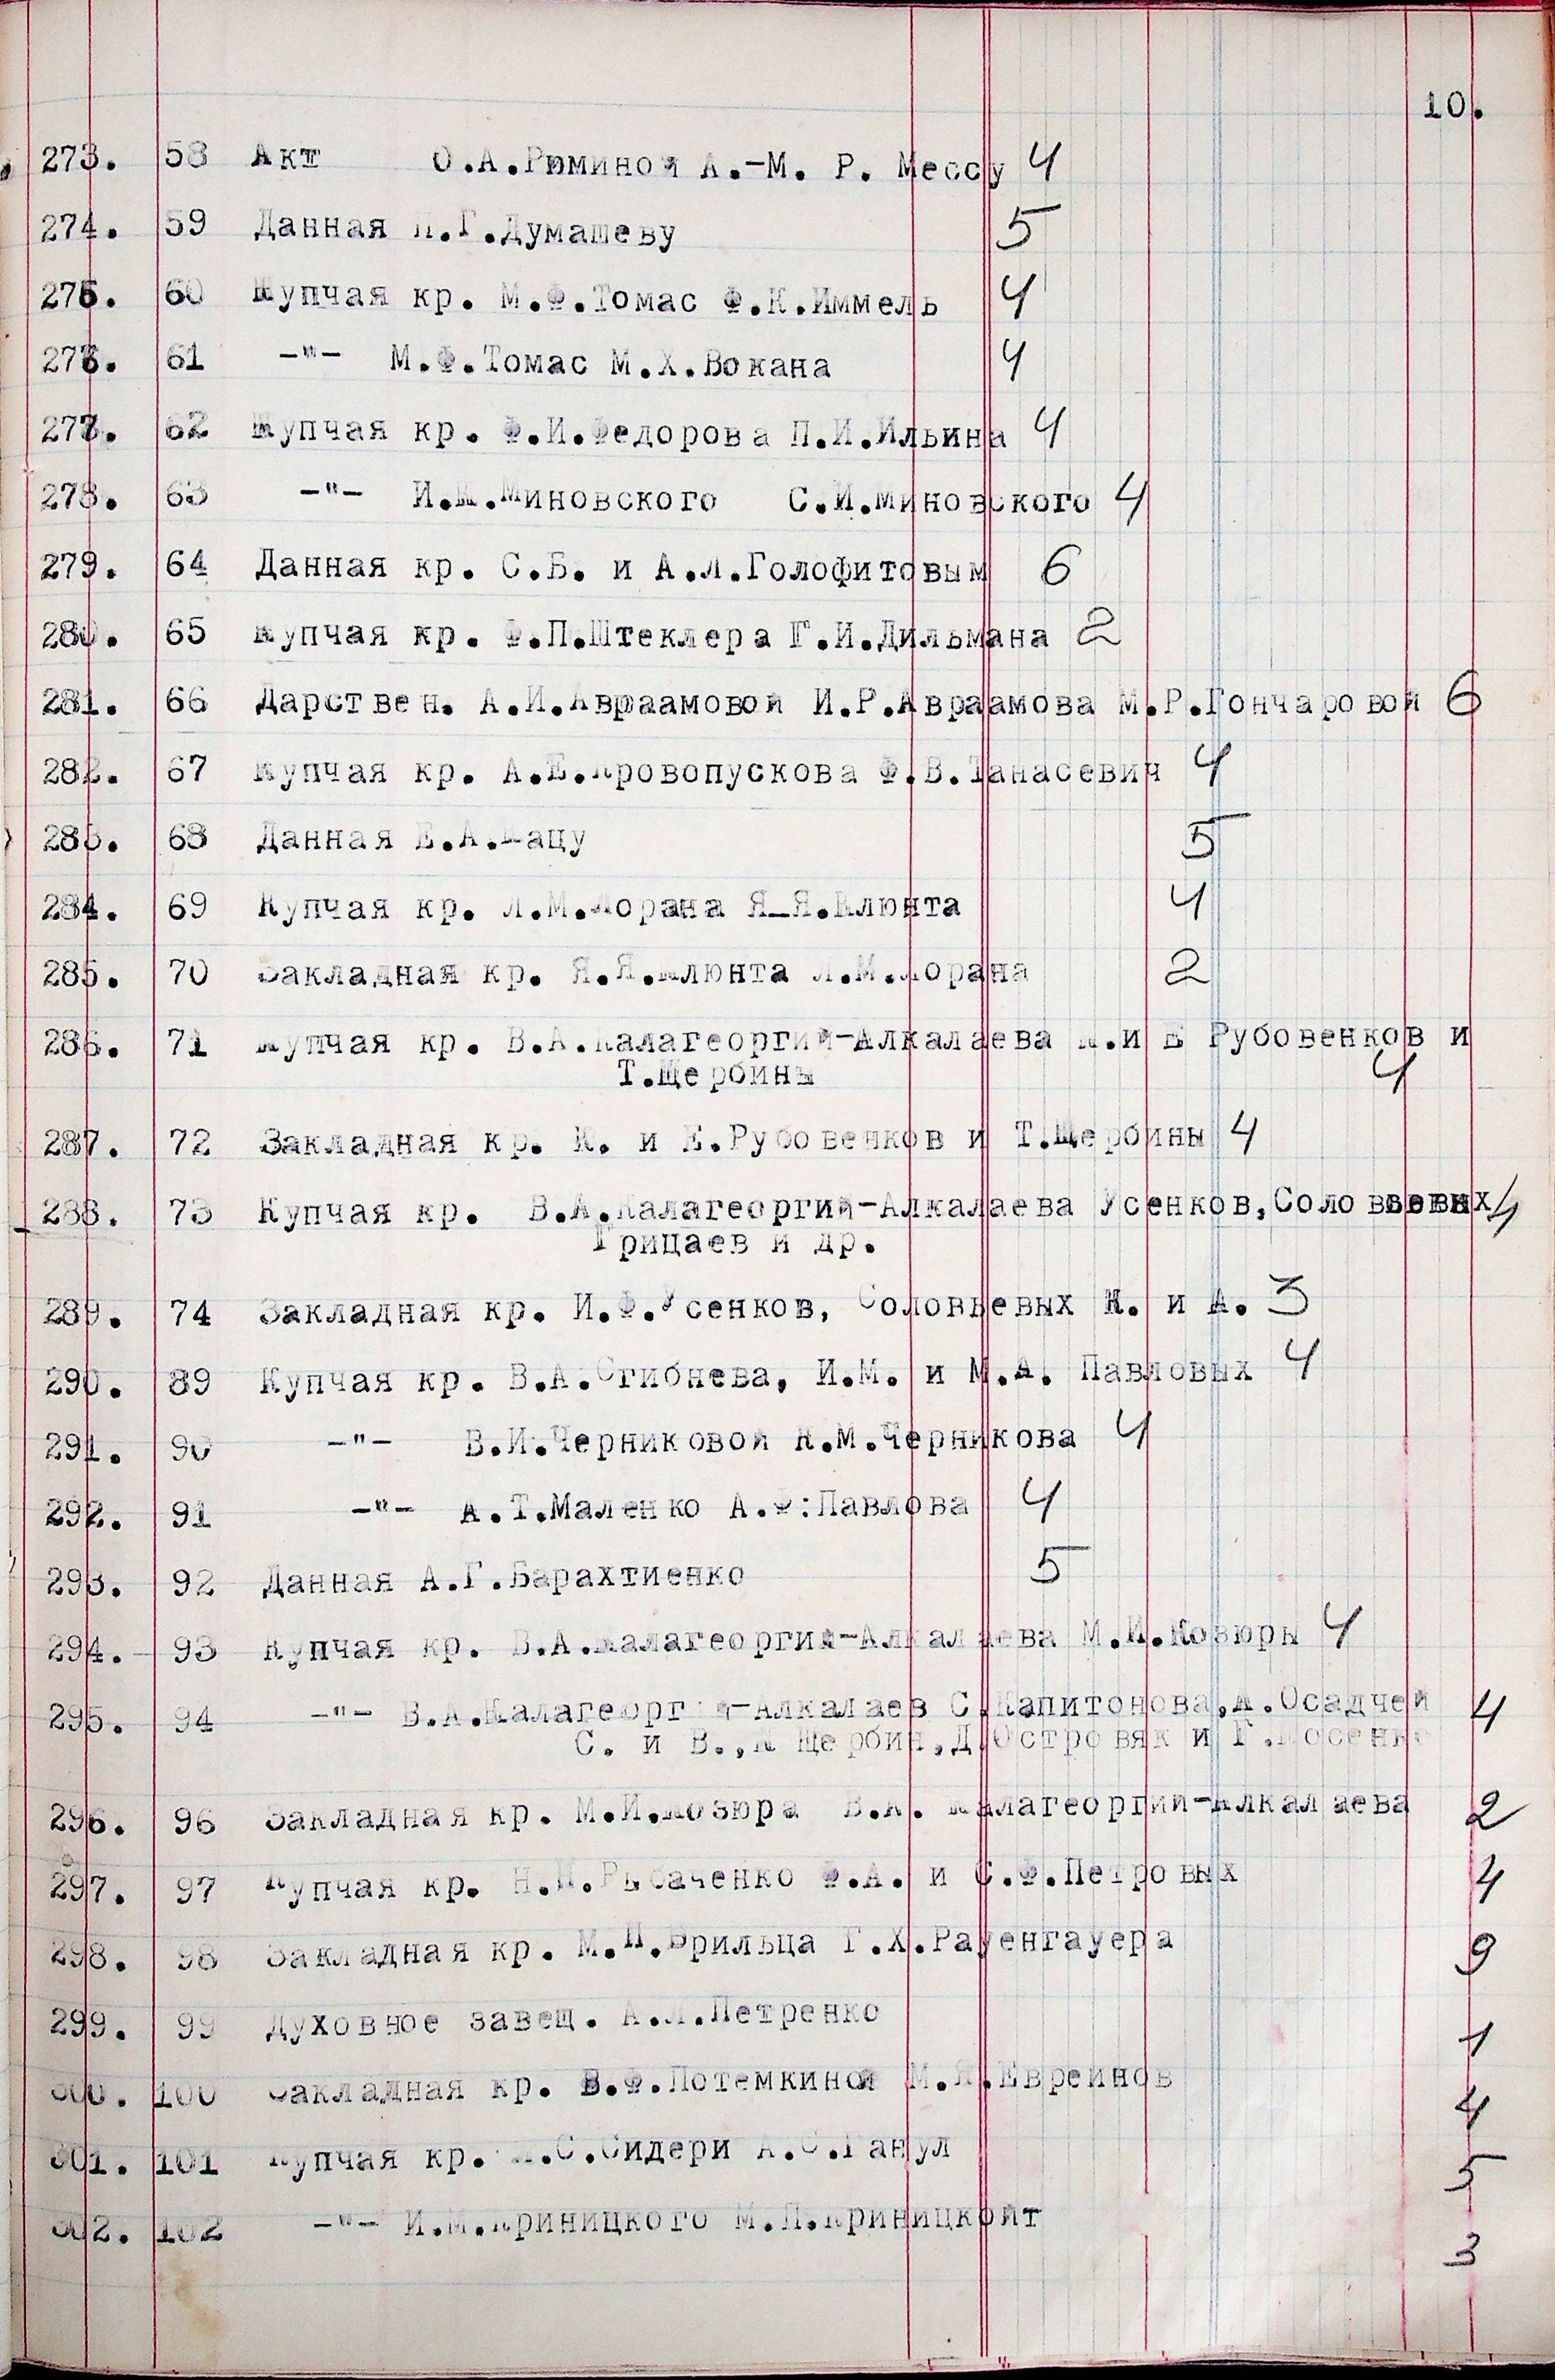 10.
273. 58 Акт О.А.Рюминой А.-М. Р. Мессу 4
274. 59 Данная П.Г.Думашеву 5
275. 60 Купчая кр. М.Ф.Томас Ф.К.Иммель 4
276. 61 -"- М.Ф.Томас М.Х.Вокана 4
277. 62 Купчая кр. Ф.И.Федорова П.И.Ильина 4
278. 63 -"- И.М.Миновского С.И.Миновского 4
279. 64 Данная кр. С.Б. и А.Л.Голофитовым 6
280. 65 Купчая кр. Ф.П.Штеклера Г.И.Дильмана 2
281. 66 Дарствен. А.И.Авраамовой И.Р.Авраамова М.Р.Гончаровой 6
282. 67 Купчая кр. А.Е.Кровопускова Ф.В.Танасевич 4
283. 68 Данная Е.А.Кацу 5
284. 69 Купчая кр. Л.М.Лорана Я-Я.Клюнта 4
285. 70 Закладная кр. Я.Я.Клюнта Л.М.Лорана 2
286. 71 Купчая кр. В.А.Калагеоргий-Алкалаева К.и Е Рубовенков и
Т.Щербины 4
287. 72 Закладная кр. К. и Е.Рубовенков и Т.Щербины 4
288. 73 Купчая кр. В.А.Калагеоргий-Алкалаева Усенков,Соловьевых 4
Грицаев и др.
289. 74 Закладная кр. И.Ф.Усенков, Соловьевых К. и А. 3
290. 89 Купчая кр. В.А.Сгибнева, И.М. и М.А. Павловых 4
291. 90 -"- В.И.Черниковой К.М.Черникова 4
292. 91 -"- А.Т.Маленко А.Ф:Павлова 4
293. 92 Данная А.Г.Барахтиенко 5
294. 93 Купчая кр. В.А.Калагеоргий-Алкалаева М.И.Козюры 4
295. 94 -"- В.А.Калагеоргий-Алкалаев С.Капитонова,А.Осадчей 4
С. и В.,К Щербин,Д.Островяк и Г.Косенко
296. 96 Закладная кр. М.И.Козюра В.А. Калагеоргий-Алкалаева 2
297. 97 Купчая кр. Н.П.Рыбаченко Ф.А. и С.Ф.Петровых 4
298. 98 Закладная кр. М.П.Брильца Г.Х.Рауенгауера 9
299. 99 Духовное завещ. А.Л.Петренко 1
300. 100 Закладная кр. В.Ф.Потемкиной М.Я.Евреинов 4
301. 101 Купчая кр. С.Сидери А.С.Ганул 5
302. 102 -"- И.М.Криницкого М.П.Криницкойт 3